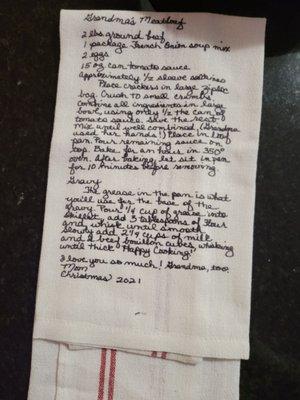 Grandma's Meatloaf
2 lbs ground beef
1 package French Onion soup mix
2 eggs
15 oz can tomato sauce
approximately 1/2 sleeve saltines
Place crackers in large ziploc
bag. Crush to small crumbs.
Combine all ingredients in large
bowl, using only 1/2 the can of
tomato sauce. Save the rest.
Mix until well combined (Grandma
used her hands!) Place in loaf
pan. Pour remaining sauce on
top. Bake for an hour in 350°
oven. After baking, let sit in pan
for 10 minutes before removing.
Gravy
The grease in the pan is what
you'll use for the base of the
gravy. Pour 1/4 cup of grease into
skillet, add 3 tablespoons of flour
and whisk until smooth.
Slowly add 2 1/4 cups of milk
and 2 beef bouillon cubes, whisking
until thick. Happy Cooking!
I love you so much! Grandma, too.
Mom
Christmas 2021